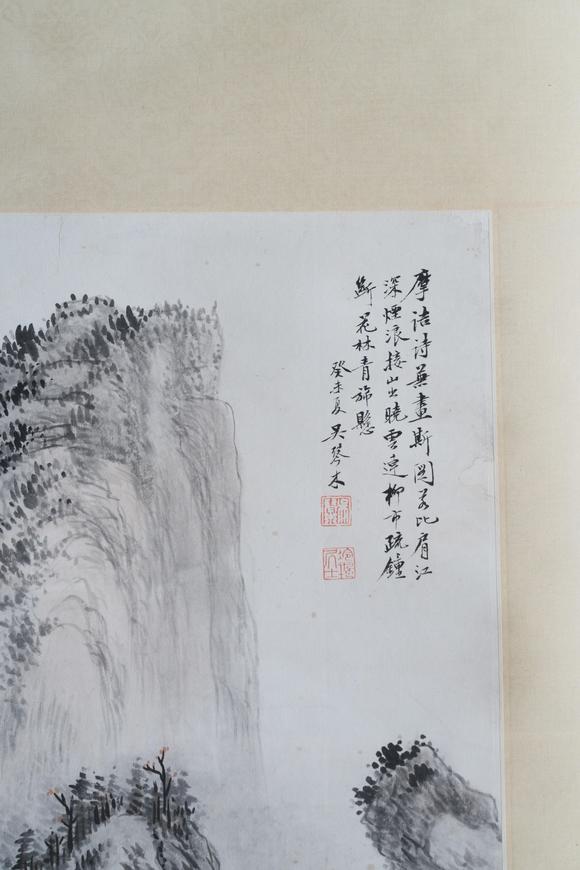 摩詰詩兼畫斯図若比肩江
深煙浪接山出曉雲連柳市疏鐘
斷花林青旆懸
癸未夏吳琴木